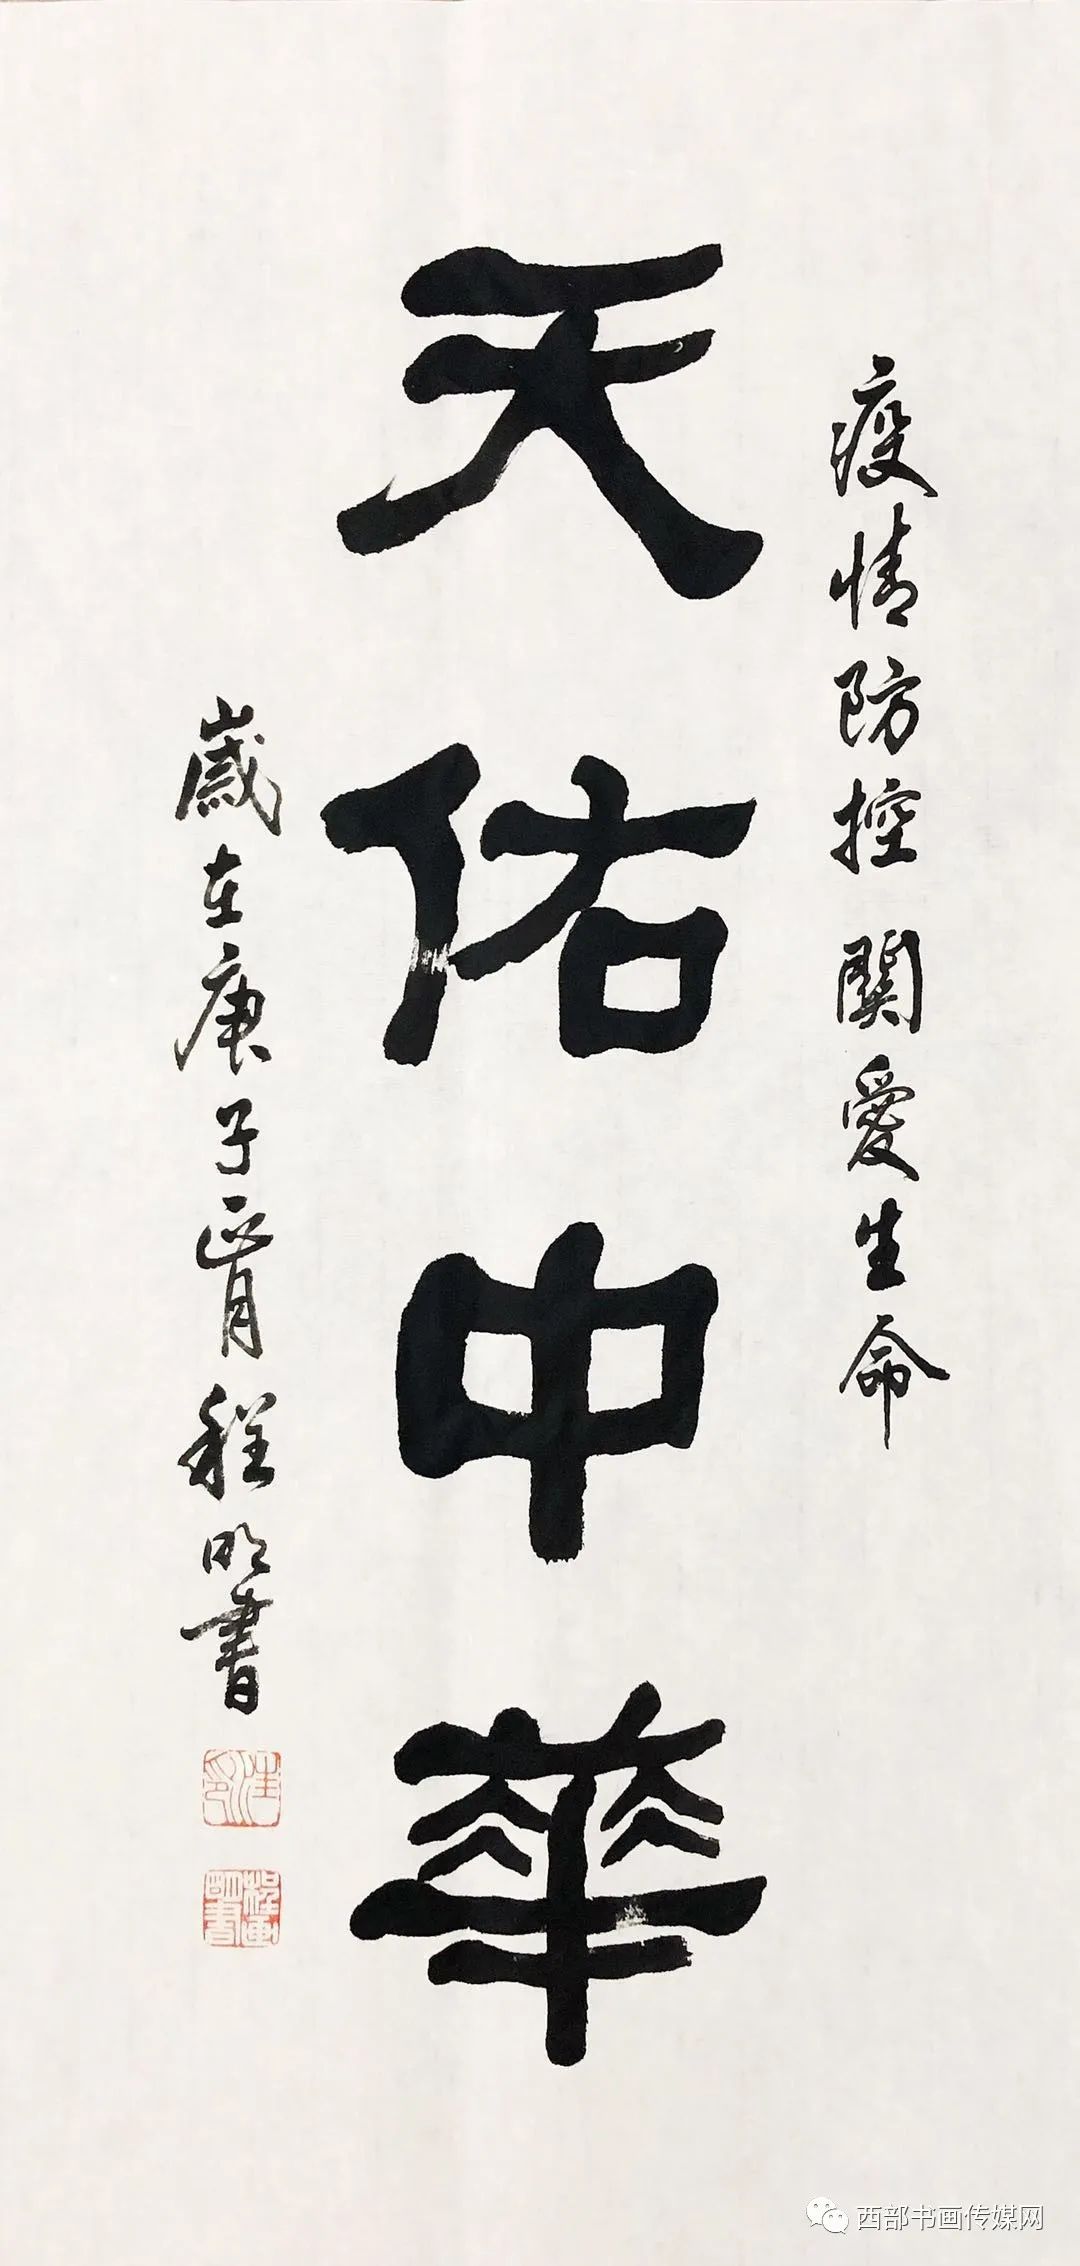 疫情防控關愛生命
天佑中華
歲在庚子正月程明書
西部书画传媒网